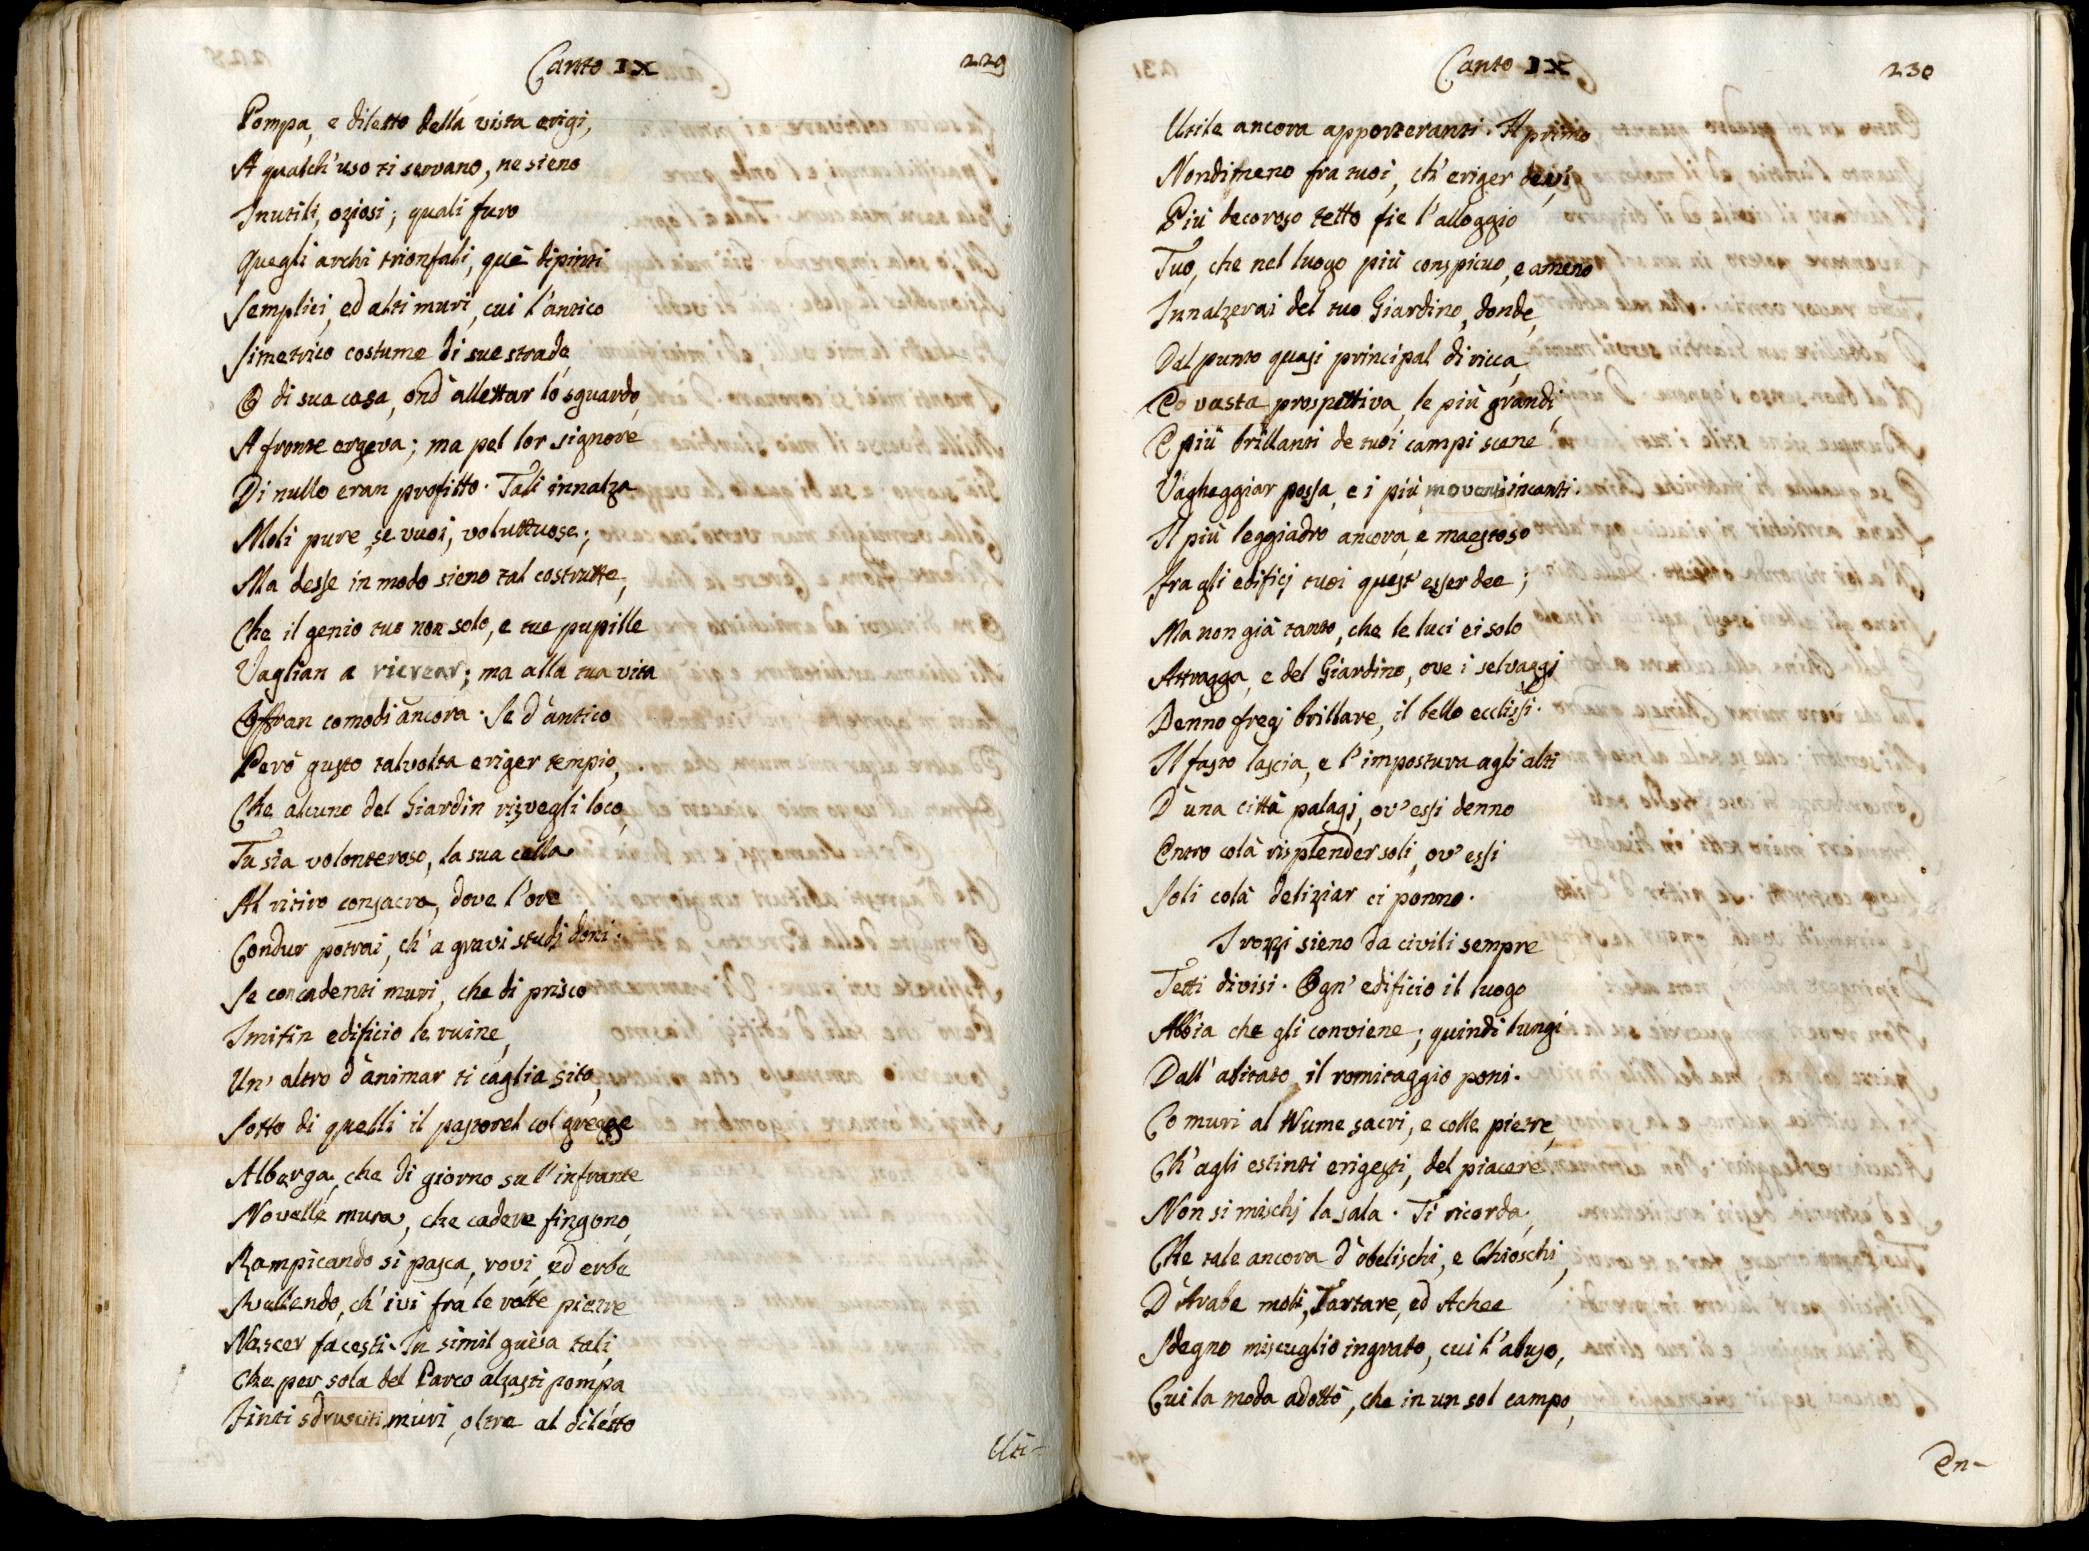 Canto IX 229
Pompa, e diletto della vista erigi,
A qualch'uso ti servano, ne sieno
Inutili, oziosi; quali furo
Quegli archi trionfali, què dipinti
Semplici, ed alti muri, cui l'antico
Simetrico costume di sue strade,
O di sua casa, ond'allettar lo sguardo,
A fronte ergeva; ma pel lor signore
Di nullo eran profitto. Tali innalza
Moli pure, se vuoi, voluttuose;
Ma desse in modo sieno tal costrutte,
Che il genio tuo non solo, e tue pupille
Vaglian a ricrear; ma alla tua vita
Offran comodi ancora. Se d'antico
Però gusto talvolta eriger tempio,
Che alcuno del Giardin risvegli loco,
Tu sia volonteroso, la sua cella
Al ritiro consacra, dove l'ore
Condur potrai, ch'a gravi studj doni.
Se con cadenti muri, che di prisco
Imitin edificio le ruine,
Un' altro d'animar ti caglia sito,
Sotto di quelli il pastorel col gregge
Alberga, che di giorno sull'infrante
Novelle mura, che cadere fingono,
Rampicando si pasca, rovi, ed erbe
Svellendo, ch'ivi fra le rotte pietre
Nascer facesti. In simil guisa tali,
Che per sola del Parco alzasti pompa
Finti sdrusciti muri, oltre al diletto
Uti-
Canto IX 230
Utile ancora apporteranti. Il primo
Nondimeno fra tuoi, ch'eriger devi,
Più decoroso tetto fie l'alloggio
Tuo, che nel luogo più conspicuo, e ameno
Innalzerai del tuo Giardino, donde,
Dal punto quasi principal di ricca,
Ed vasta prospettiva, le più grandi,
E più brillanti de tuoi campi scene
Vagheggiar possa, e i più moventi incanti.
Il più leggiadro ancora, e maestoso
Fra gli edificj tuoi quest'esser dee;
Ma non già tanto, che le luci ei solo
Attragga, e del Giardino, ove i selvaggj
Denno fregj brillare, il bello ecclissi.
Il fasto lascia, e l'impostura agli alti
D'una città palagj, ov'essi denno
Entro colà risplender soli, ov'essi
Soli colà deliziar ci ponno.
I rozzi sieno da civili sempre
Tetti divisi. Ogn'edificio il luogo
Abbia che gli conviene; quindi lungi
Dall'abitato il romitaggio poni.
Co muri al Nume sacri, e colle pietre,
Ch'agli estinti erigesti, del piacere
Non si mischj la sala. Ti ricorda,
Che tale ancora d'obelischi, e Chioschi,
D'Arabe moli, Tartare, ed Achee
Sdegno miscuglio ingrato, cui l'abuso,
Cui la moda adottò, che in un sol campo,
En-